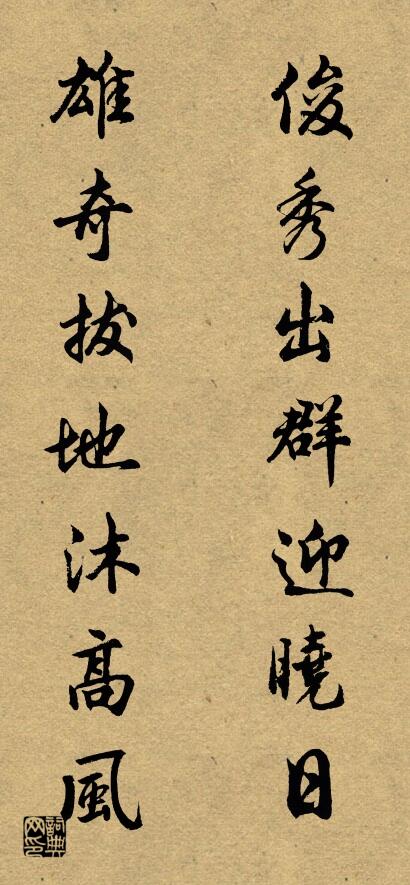 俊秀出群迎曉日
雄奇拔地沐高風
詞典网印